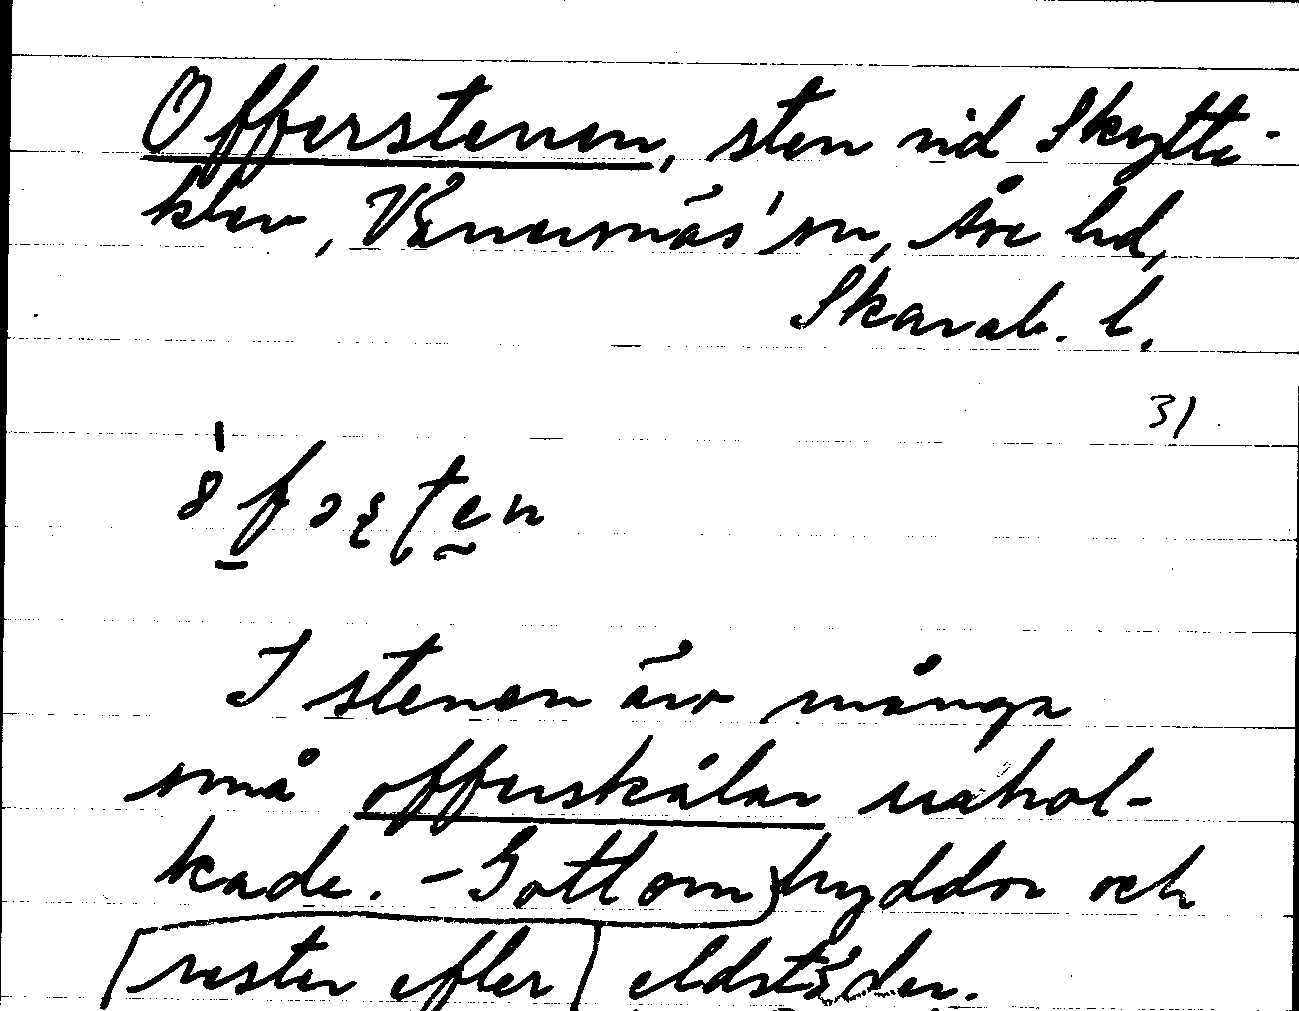 Offerstenen, sten vid Skytte-
klev, Vänersnäs' sn, Åse hd,
Skarab. l.
31
I stenen äro många
små offerskålar urhol-
kade. - Gott om hyddor och
rester efter eldstäder.